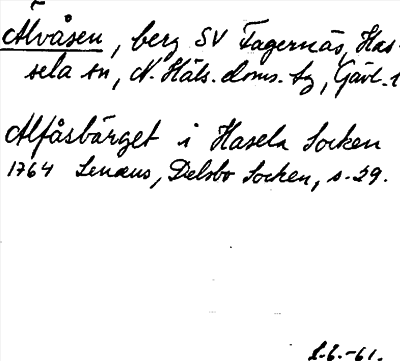 Älvåsen, berg SV Fagernäs, Has-
sela sn, N. Häls. doms. tg, Gävl. l
Alfåsbärget i Hasela Socken
1764 Lenæus, Delsbo Socken, s. 39.
L.E.-61.